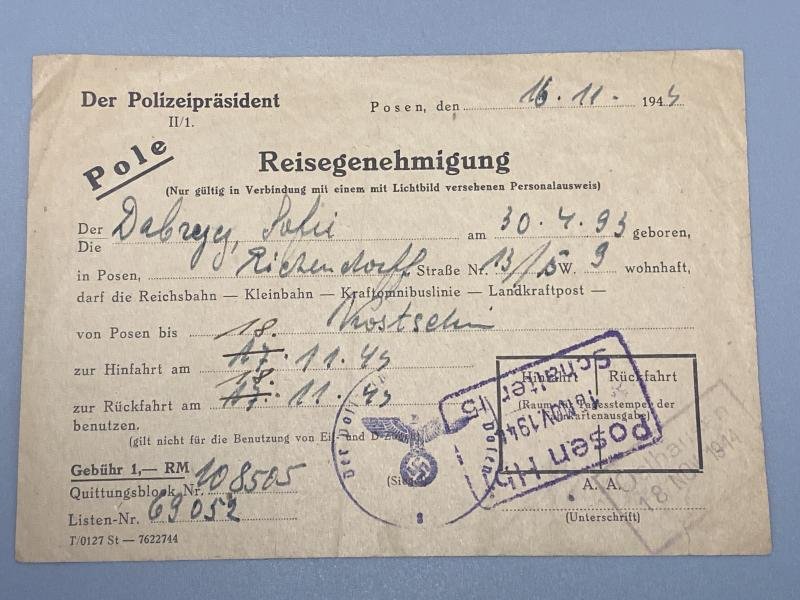 Der Polizeipräsident
II/1.
Posen, den 16. 11. 1944
Pole
Reisegenehmigung
(Nur gültig in Verbindung mit einem mit Lichtbild versehenen Personalausweis)
Der Sofie am 30. 4. 93 geboren,
Die
in Posen, Straße Nr. 13/15 W. 9 wohnhaft,
darf die Reichsbahn — Kleinbahn — Kraftomnibuslinie — Landkraftpost —
von Posen bis Kostschin
zur Hinfahrt am 18. 11. 44
zur Rückfahrt am 18. 11. 44
benutzen.
(gilt nicht für die Benutzung von Eil- und D-Zügen)
Hinfahrt Rückfahrt
(Raum für Tagesstempel der
Fahrkartenausgabe)
Posen Hbf
16 NOV 1944
Schalter 15
18 NOV 1944
Gebühr 1,— RM
Quittungsblock Nr. 108505
Listen-Nr. 69052
(Siegel)
Posen
8
A. A.
(Unterschrift)
T/0127 St — 7622744